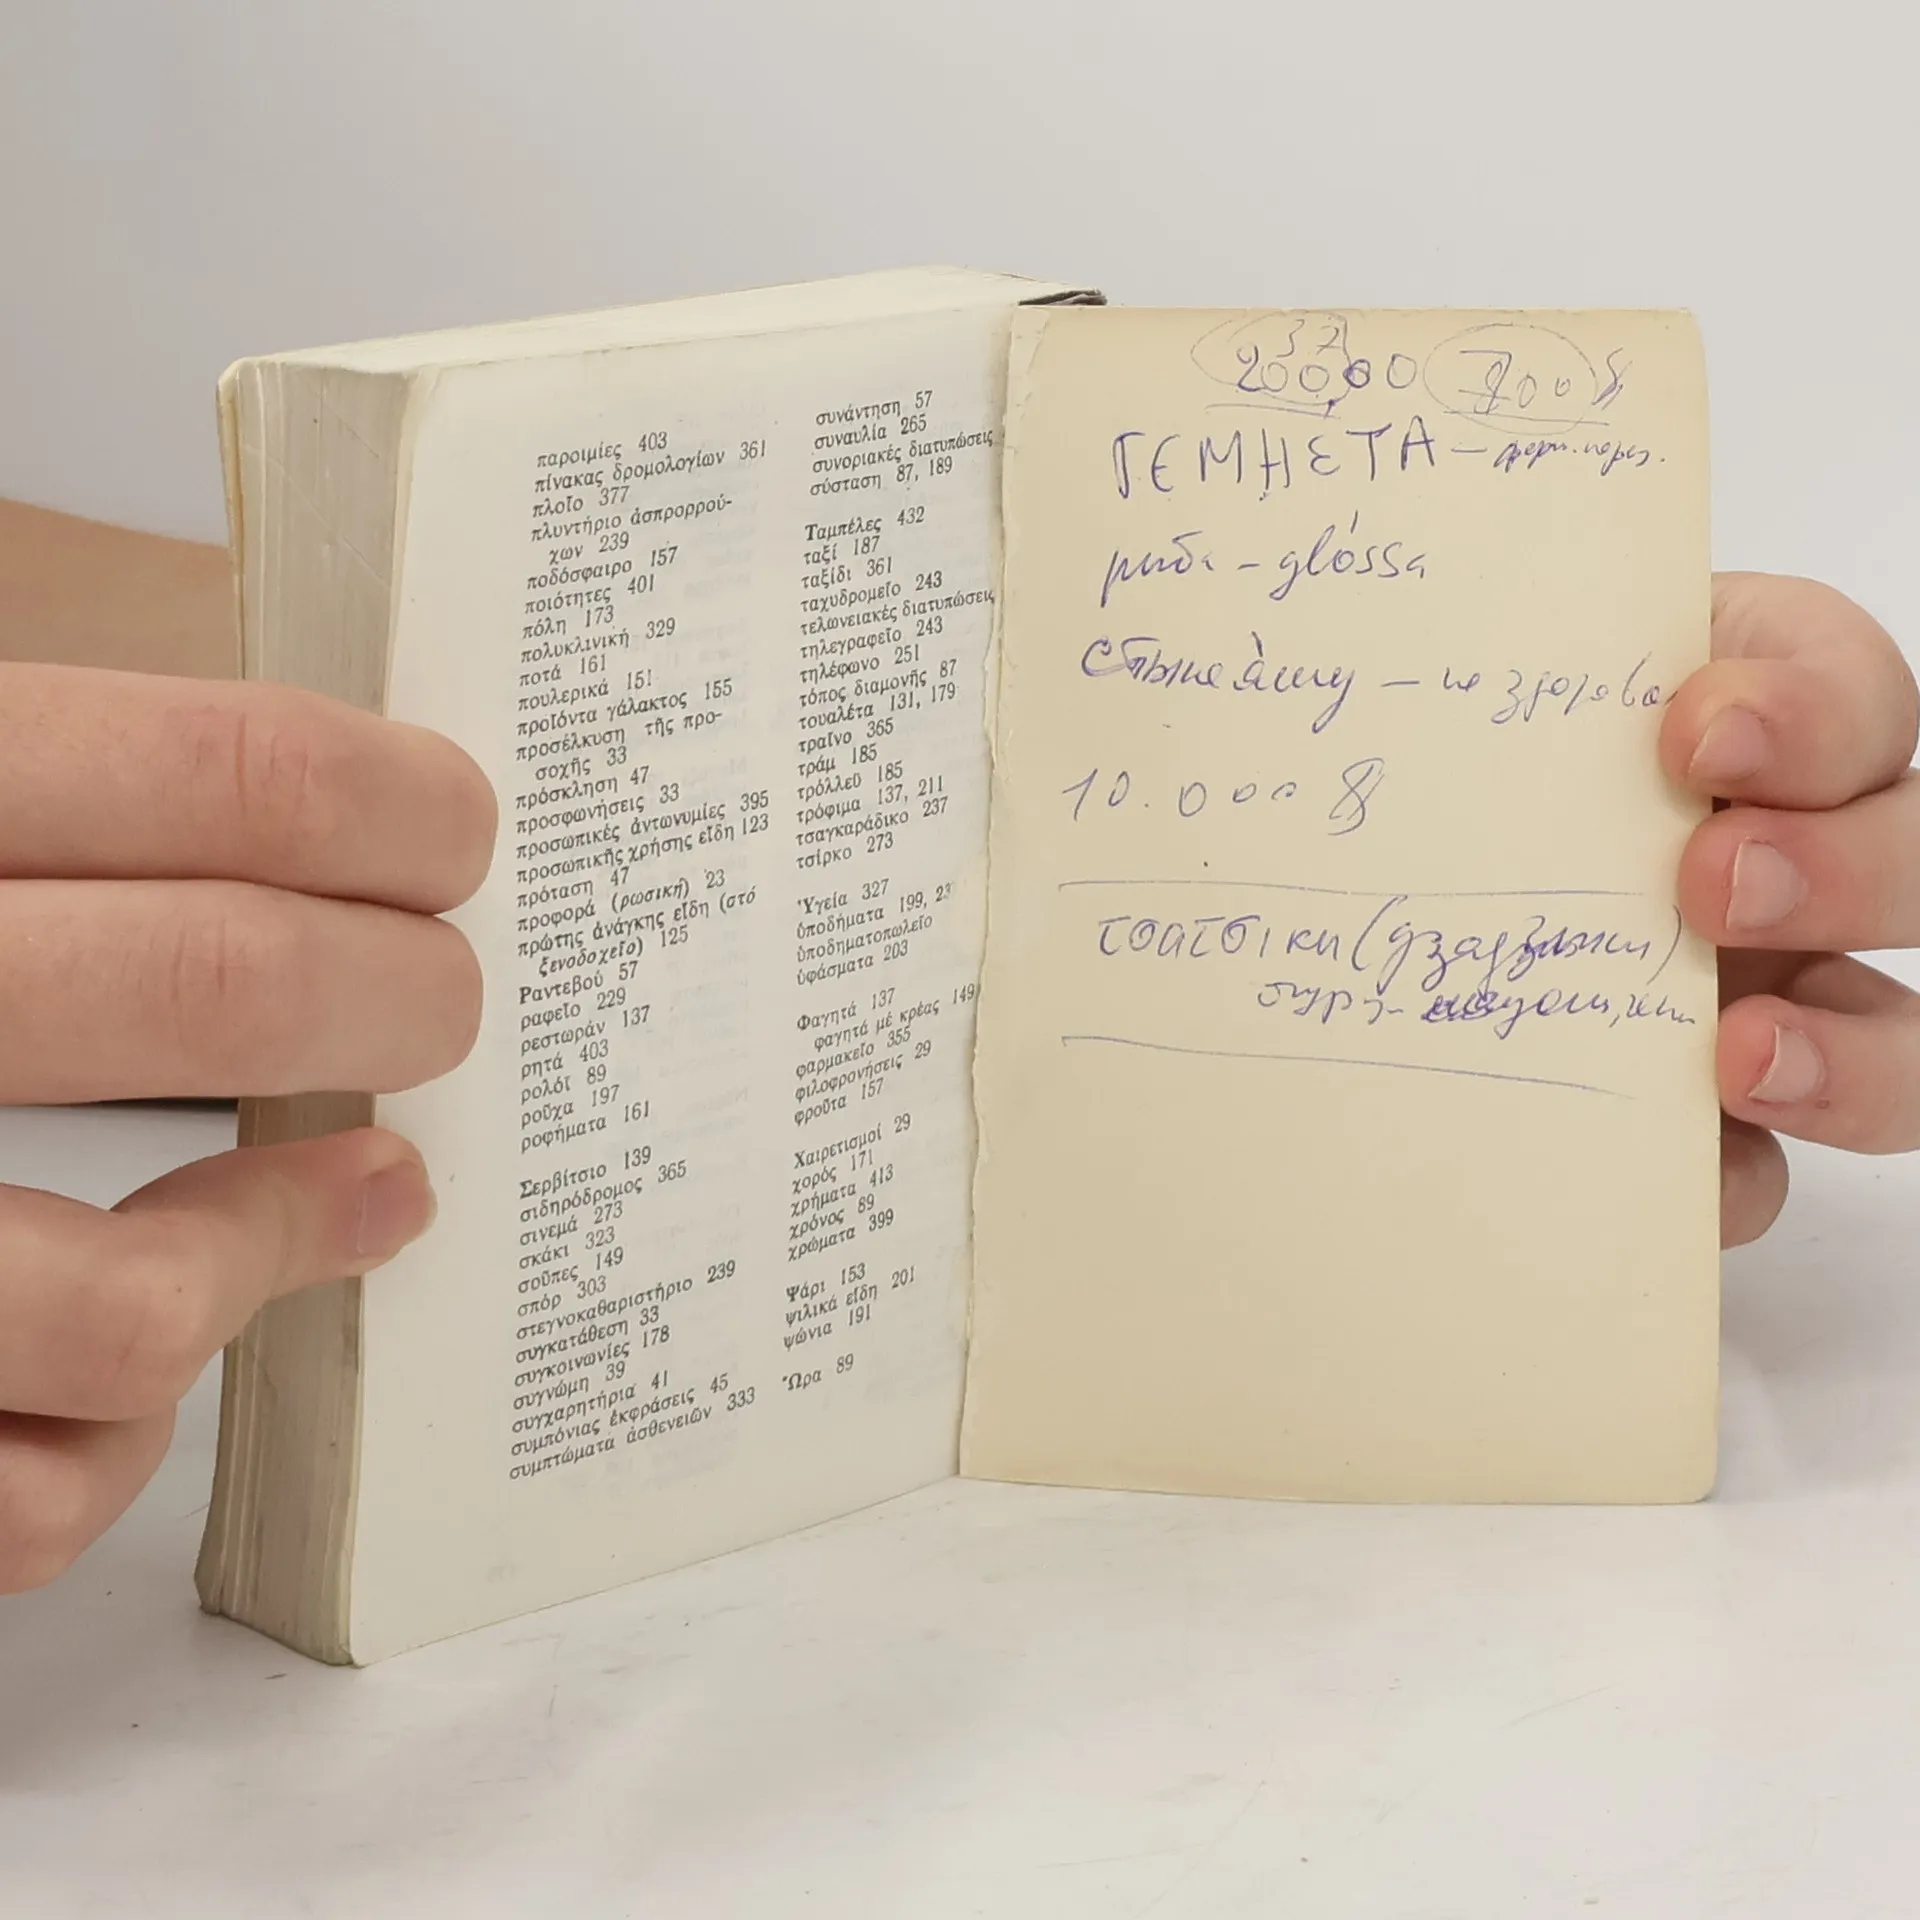 παροιμίες 403
πίνακας δρομολογίων 361
πλοῖο 377
πλυντήριο ἀσπρορρού-
χων 239
ποδόσφαιρο 157
ποιότητες 401
πόλη 173
πολυκλινική 329
ποτά 161
πουλερικά 151
προϊόντα γάλακτος 155
προσέλκυση τῆς προ-
σοχῆς 33
πρόσκληση 47
προσφωνήσεις 33
προσωπικές ἀντωνυμίες 395
προσωπικῆς χρήσης εἴδη 123
πρόταση 47
προφορά (ρωσική) 23
πρώτης ἀνάγκης εἴδη (στό
ξενοδοχεῖο) 125
Ραντεβού 57
ραφεῖο 229
ρεστωράν 137
ρητά 403
ρολόϊ 89
ροῦχα 197
ροφήματα 161
Σερβίτσιο 139
σιδηρόδρομος 365
σινεμά 273
σκάκι 323
σοῦπες 149
σπόρ 303
στεγνοκαθαριστήριο 239
συγκατάθεση 33
συγκοινωνίες 178
συγνώμη 39
συγχαρητήρια 41
συμπόνιας ἐκφράσεις 45
συμπτώματα ἀσθενειῶν 333
συνάντηση 57
συναυλία 265
συνοριακές διατυπώσεις
σύσταση 87, 189
Ταμπέλες 432
ταξί 187
ταξίδι 361
ταχυδρομεῖο 243
τελωνειακές διατυπώσεις
τηλεγραφεῖο 243
τηλέφωνο 251
τόπος διαμονῆς 87
τουαλέτα 131, 179
τραῖνο 365
τράμ 185
τρόλλεϋ 185
τρόφιμα 137, 211
τσαγκαράδικο 237
τσίρκο 273
Ὑγεία 327
ὑποδήματα 199, 23
ὑποδηματοπωλεῖο
ὑφάσματα 203
Φαγητά 137
φαγητά μέ κρέας 149
φαρμακεῖο 355
φιλοφρονήσεις 29
φροῦτα 157
Χαιρετισμοί 29
χορός 171
χρήματα 413
χρόνος 89
χρώματα 399
Ψάρι 153
ψιλικά εἴδη 201
ψώνια 191
Ὥρα 89
37
20000
ΓΕΜΗΣΤΑ
– glóssa
10.000
τσατσικи